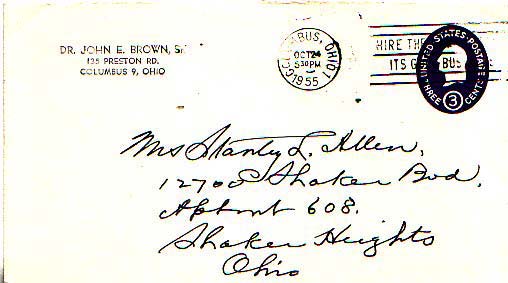 DR. JOHN E. BROWN, Sr
135 PRESTON RD.
COLUMBUS 9, OHIO
BUS, OHIO 1
OCT 24
530 PM
1955
HIRE TH
ITS G BUS
UNITED STATES POSTAGE
THREE 3 CENTS
Mrs Stanley L. Allen,
12700 Shaker Bvd,
608.
Shaker Heights
Ohio